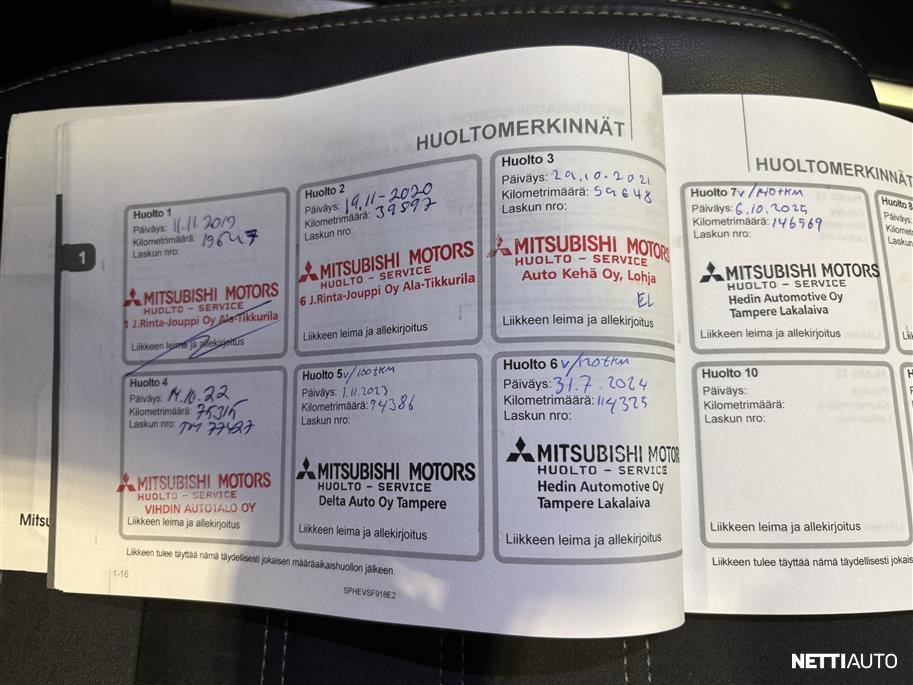 HUOLTOMERKINNÄT
Huolto 1
Päiväys: 11.11 2019
Kilometrimäärä: 19647
Laskun nro:
MITSUBISHI MOTORS
HUOLTO - SERVICE
1 J.Rinta-Jouppi Oy Ala-Tikkurila
Liikkeen leima ja allekirjoitus
Huolto 2
Päiväys: 19.11-2020
Kilometrimäärä: 39597
Laskun nro:
MITSUBISHI MOTORS
HUOLTO - SERVICE
6 J.Rinta-Jouppi Oy Ala-Tikkurila
Liikkeen leima ja allekirjoitus
Huolto 3
Päiväys: 29.10.2021
Kilometrimäärä: 59648
Laskun nro:
MITSUBISHI MOTORS
HUOLTO - SERVICE
Auto Kehä Oy, Lohja
EL
Liikkeen leima ja allekirjoitus
1
Huolto 4
Päiväys: 14.10.22
Kilometrimäärä: 75315
Laskun nro: 77427
MITSUBISHI MOTORS
HUOLTO - SERVICE
VIHDIN AUTOTALO OY
Liikkeen leima ja allekirjoitus
Huolto 5 v/100tkm
Päiväys: 1.11.2023
Kilometrimäärä: 94386
Laskun nro:
MITSUBISHI MOTORS
HUOLTO - SERVICE
Delta Auto Oy Tampere
Liikkeen leima ja allekirjoitus
Huolto 6 v/120tkm
Päiväys: 31.7.2024
Kilometrimäärä: 114325
Laskun nro:
MITSUBISHI MOTOR
HUOLTO - SERVICE
Hedin Automotive Oy
Tampere Lakalaiva
Liikkeen leima ja allekirjoitus
Liikkeen tulee täyttää nämä täydellisesti jokaisen määräaikaishuollon jälkeen.
1-16
SPHEVSF918E2
Mitsu
HUOLTOMERKINNÄT
Huolto 7 v/140tkm
Päiväys: 6.10.2025
Kilometrimäärä: 146569
Laskun nro:
MITSUBISHI MOTORS
HUOLTO - SERVICE
Hedin Automotive Oy
Tampere Lakalaiva
Liikkeen leima ja allekirjoitus
Huolto 8
Huolto 10
Päiväys:
Kilometrimäärä:
Laskun nro:
Liikkeen leima ja allekirjoitus
Liikkeen tulee täyttää nämä täydellisesti jokais
NETTIAUTO